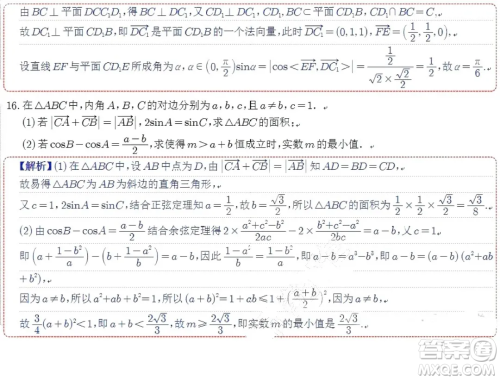 由 BC⊥平面 DCC₁D₁,得 BC⊥DC₁,又 CD₁⊥DC₁,CD₁,BC⊂平面 CD₁B,CD₁∩BC=C.
故 DC₁⊥平面 CD₁B,即 $\overrightarrow{DC_1}$ 是平面 CD₁B 的一个法向量,此时 $\overrightarrow{DC_1}$=(0,1,1),$\overrightarrow{FE}$=($\frac{1}{2}$,$\frac{1}{2}$,0),
设直线 EF 与平面 CD₁E 所成角为 α,α∈(0,$\frac{π}{2}$)sinα=|cos<$\overrightarrow{EF}$,$\overrightarrow{DC_1}$>|=$\frac{\frac{1}{2}}{\sqrt{2}×\frac{\sqrt{2}}{2}}$=$\frac{1}{2}$,故 α=$\frac{π}{6}$.
16.在△ABC中,内角 A,B,C 的对边分别为 a,b,c,且 a≠b,c=1.
(1)若|$\overrightarrow{CA}$+$\overrightarrow{CB}$|=|$\overrightarrow{AB}$|,2sinA=sinC,求△ABC 的面积;
(2)若 cosB−cosA=$\frac{a-b}{2}$,求使得 m>a+b 恒成立时,实数 m 的最小值.
【解析】(1)在△ABC 中,设 AB 中点为 D,由|$\overrightarrow{CA}$+$\overrightarrow{CB}$|=|$\overrightarrow{AB}$|知 AD=BD=CD,
故易得△ABC 为 AB 为斜边的直角三角形,
又 c=1,2sinA=sinC,结合正弦定理知 a=$\frac{1}{2}$,故 b=$\frac{\sqrt{3}}{2}$,所以△ABC 的面积为 $\frac{1}{2}$×$\frac{1}{2}$×$\frac{\sqrt{3}}{2}$=$\frac{\sqrt{3}}{8}$.
(2)由 cosB−cosA=$\frac{a-b}{2}$ 结合余弦定理得 2×$\frac{a^2+c^2-b^2}{2ac}$−2×$\frac{b^2+c^2-a^2}{2bc}$=a−b,又 c=1
即(a+$\frac{1-b^2}{a}$)−(b+$\frac{1-a^2}{b}$)=a−b,因此 $\frac{1-a^2}{b}$=$\frac{1-b^2}{a}$,即 a−b=a³−b³,即 a−b=(a−b)(a²+ab
+b²),
因为 a≠b,所以 a²+ab+b²=1,所以(a+b)²=1+ab≤1+($\frac{a+b}{2}$)²,因为 a≠b,
故 $\frac{3}{4}$(a+b)²<1,即 a+b<$\frac{2\sqrt{3}}{3}$,故 m≥$\frac{2\sqrt{3}}{3}$,即实数 m 的最小值是 $\frac{2\sqrt{3}}{3}$.
答案圈
MXQE.COM